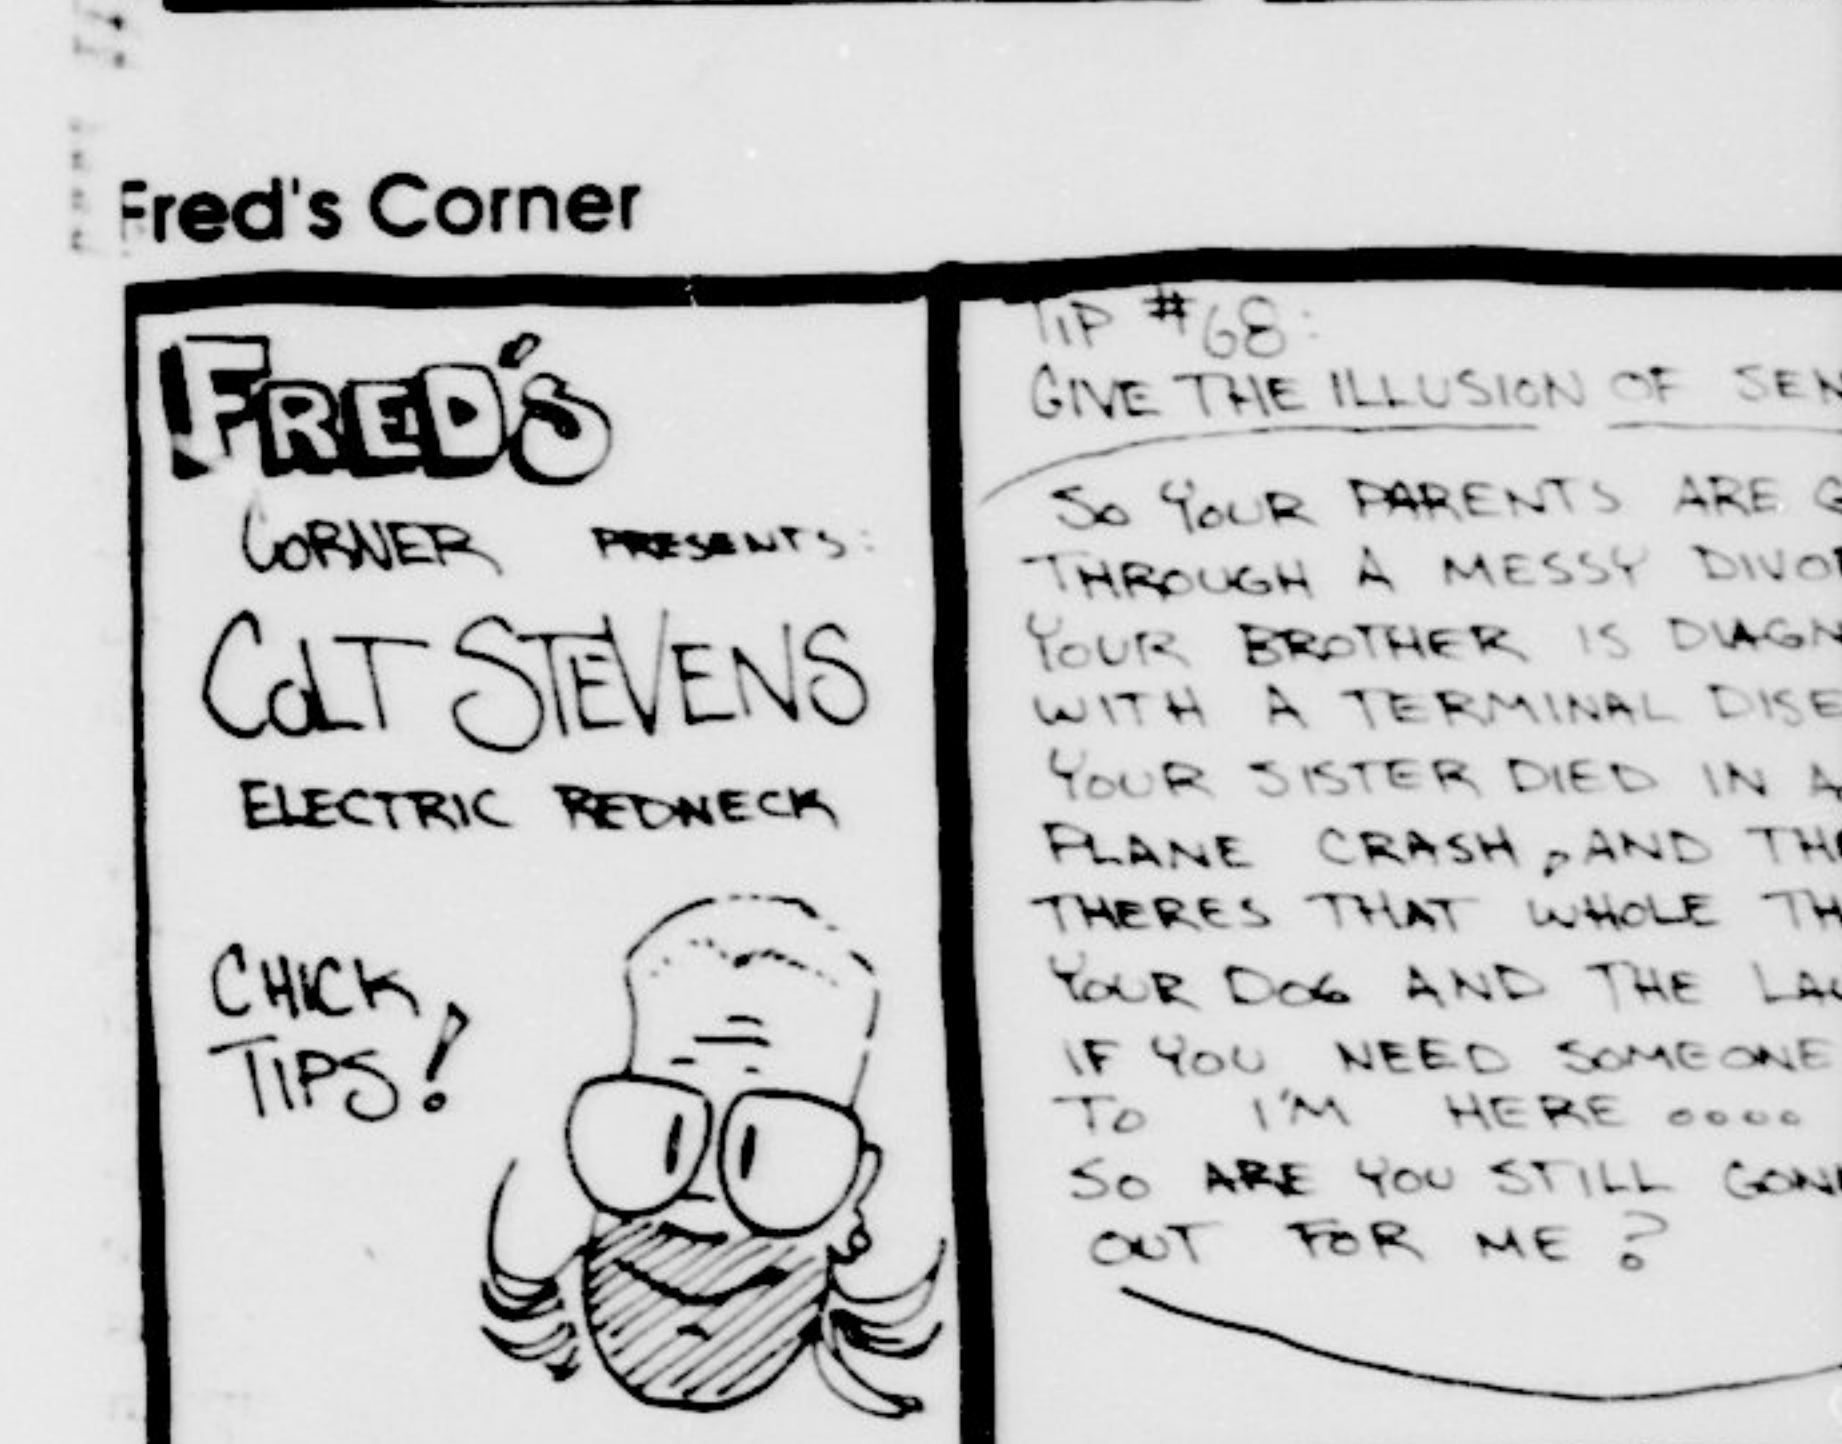 Fred's Corner
FRED'S
CORNER PRESENTS:
COLT STEVENS
ELECTRIC REDNECK
CHICK
TIPS!
TIP #68:
GIVE THE ILLUSION OF SEN
SO YOUR PARENTS ARE G
THROUGH A MESSY DIVOR
YOUR BROTHER IS DIAGN
WITH A TERMINAL DISE
YOUR SISTER DIED IN A
PLANE CRASH, AND THE
THERES THAT WHOLE TH
YOUR DOG AND THE LA
IF YOU NEED SOMEONE
TO I'M HERE ....
SO ARE YOU STILL GONN
OUT FOR ME?